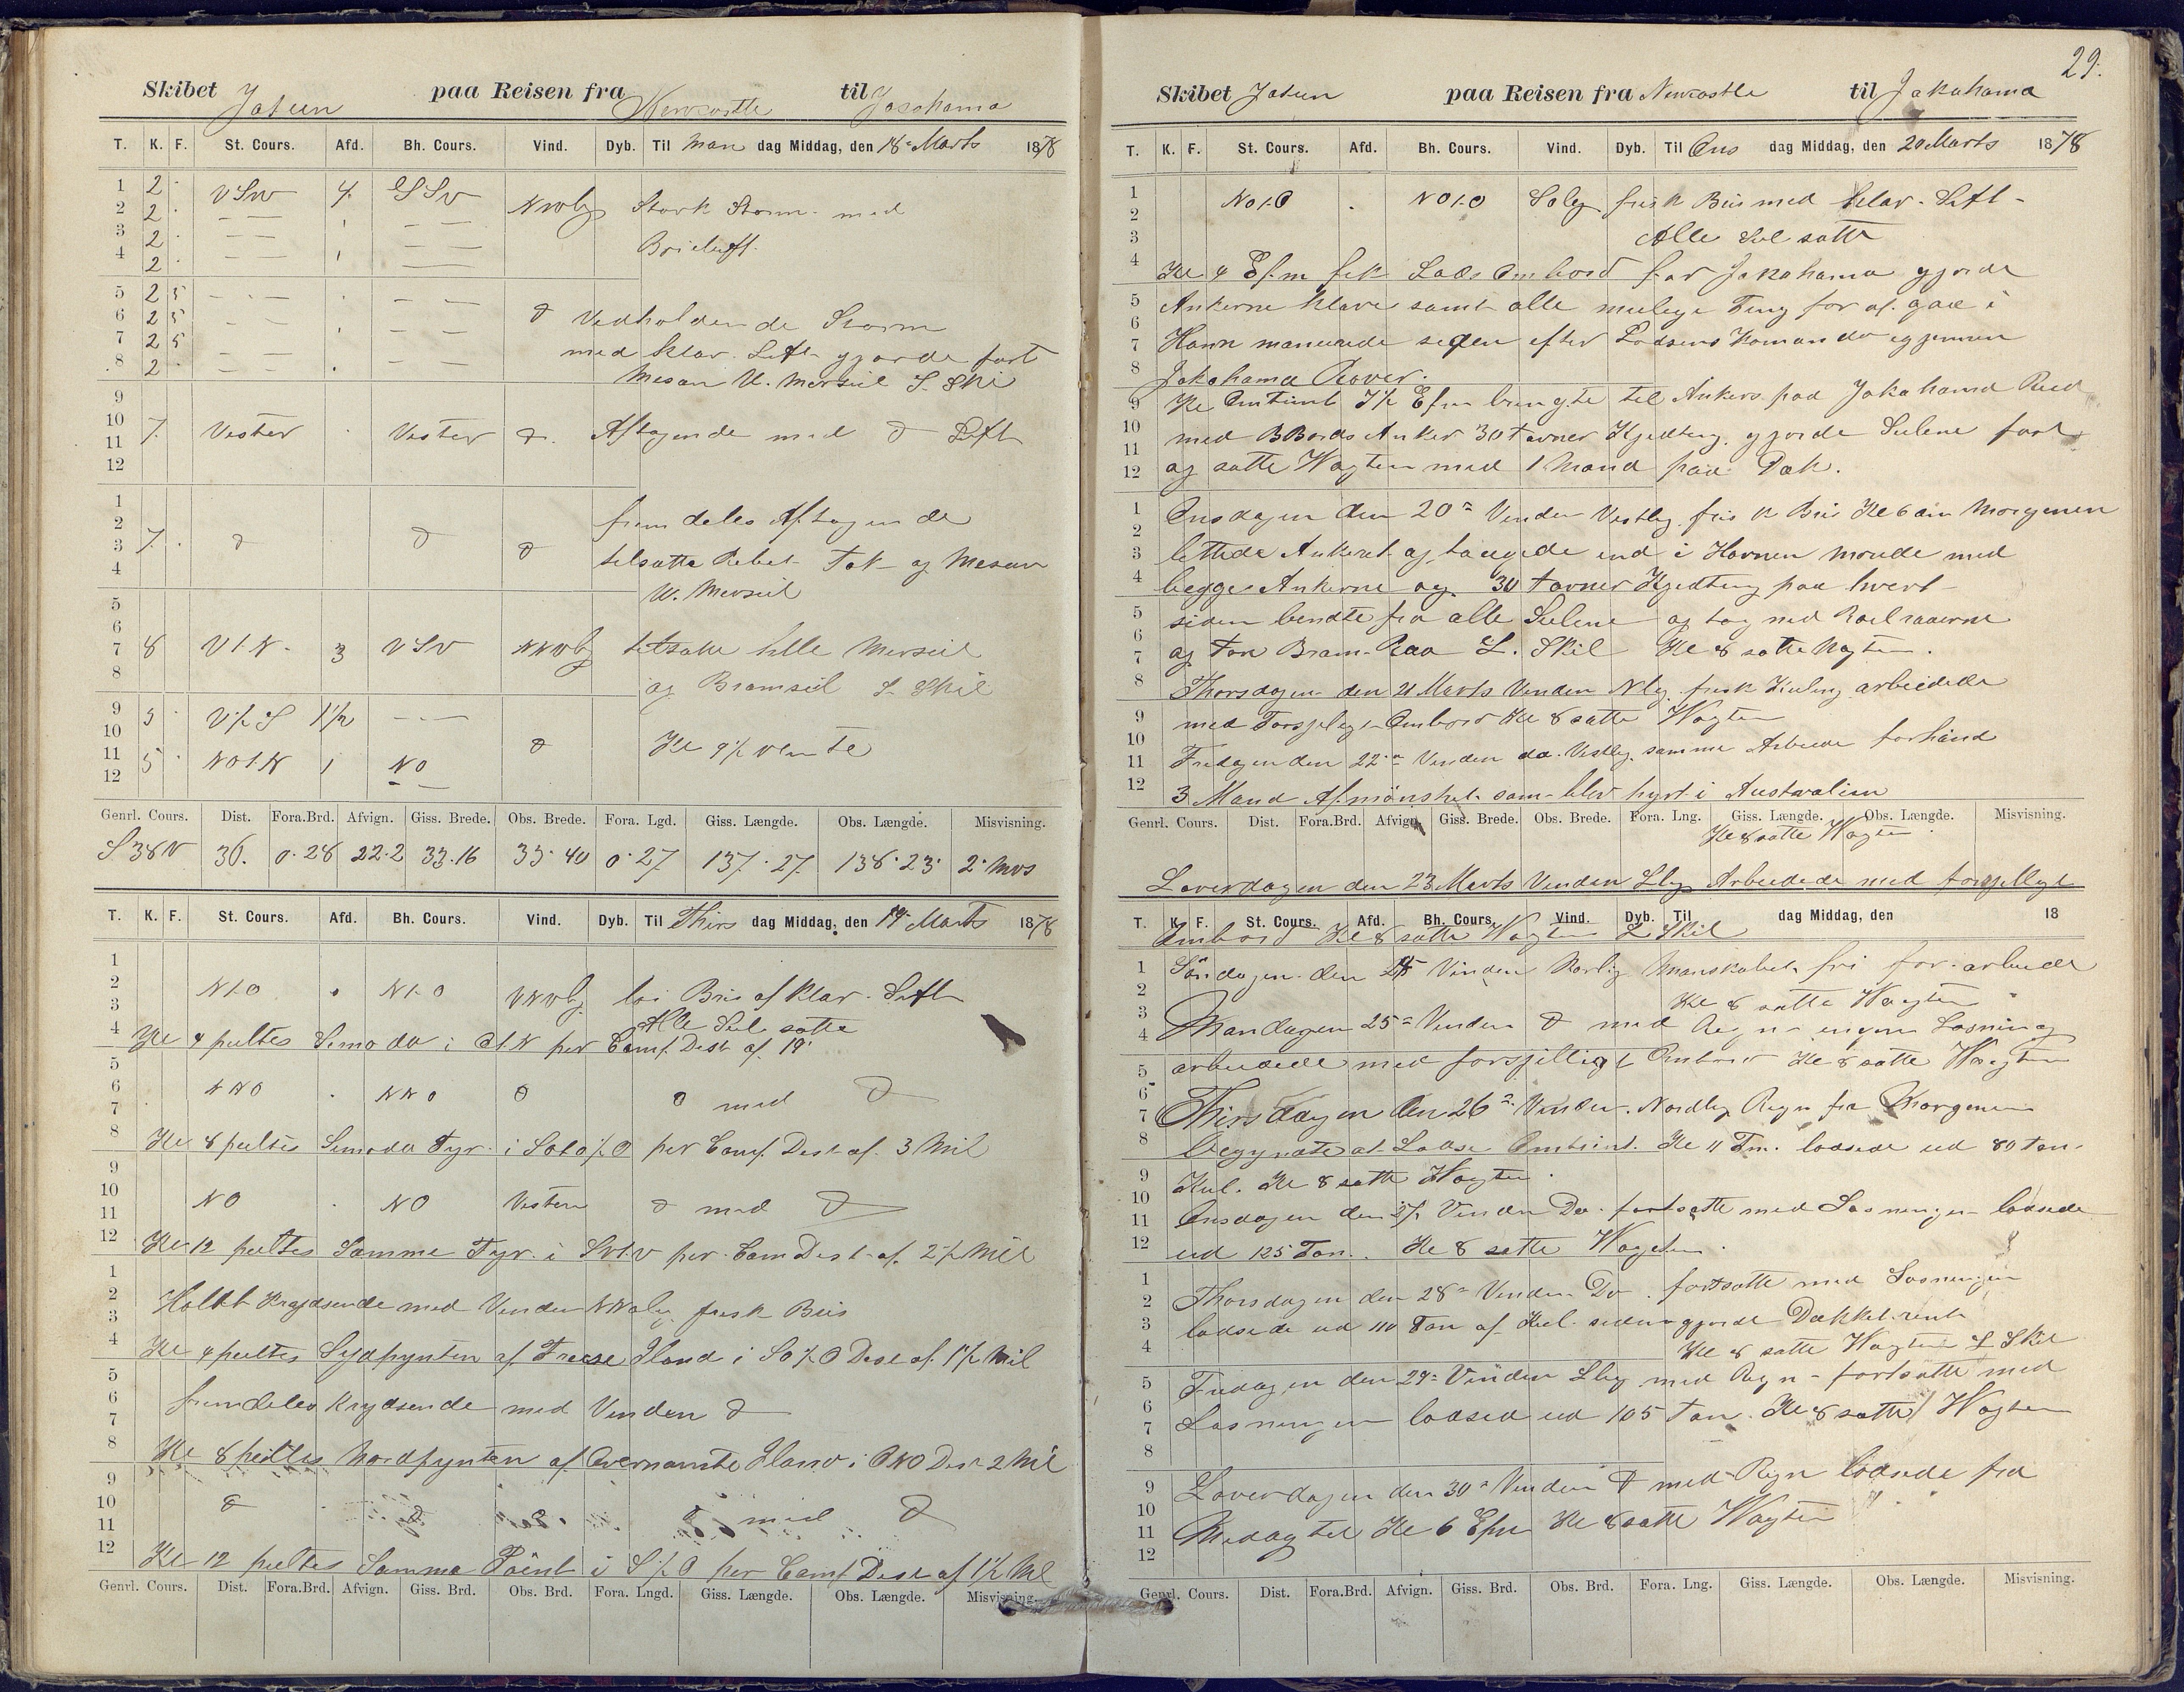 Skibet Jatun paa Reisen fra Newcastle til Jacohama
T. K. F. St. Cours. Afd. Bh. Cours. Vind. Dyb. Til Man dag Middag, den 18de Marts 1878
1 2 VSW 4 SSV NWlg Stærk Storm med
2 2
3 2 Brieluft.
4 2
5 2 5
6 2 5 d Vedholdende Storm
7 2 5 med klar Luft gjorde fast
8 2 Mesan U. Merseil S. Skil
9
10 7 Vester Vester d. Aftagende med d Luft
11
12
1 fremdeles Aftagende
2
3 7 d d d tilsatte Rebet Fok og Mesan
4 U. Merseil
5
6
7 8 V t. N. 3 VSV NNVlg tilsatte hele Merseil
8 og Bramseil S. Skil
9 5 V ½ S 1½
10 d Kl 9½ vente
11 5 NO t. N 1 NO
12
Genrl. Cours. Dist. Fora.Brd. Afvign. Giss. Brede. Obs. Brede. Fora. Lgd. Giss. Længde. Obs. Længde. Misvisning.
S 38 V 36. 0.28 22.2 33.16 33.40 0.27 137.27 138.23 2 Mvs
T. K. F. St. Cours. Afd. Bh. Cours. Vind. Dyb. Til Thirs dag Middag, den 19. Marts 1878
1
2 N t. O N t. O VNVlg lai Bris af klar Luft
3 Alle Seil satte
4 Kl 4 peiltes Simoda i O t. N per Comp. Dist af 19'
5
6 NNO NNO d d med d
7
8 Kl 8 peiltes Simoda Fyr i SO t O ½ O per Comp. Dist af 3 Mil
9
10 NO NO Vesten d med d
11
12 Kl 12 peiltes Samme Fyr i SV t. V per Com Dist af 2½ Mil
1
2 Holdt Krydsende med Vinden NNOlig frisk Bris
3
4 Kl 4 peiltes Sydpynten af Freese Iland i SO ½ O Dist af 1½ Mil
5
6 fremdeles krydsende med Vinden d
7
8 Kl 8 peiltes Nordpynten af Overnævnte Iland i ONO Dist 2 Mil
9
10 d d d d med d
11
12 Kl 12 peiltes Samma Point i S ½ O per Comp Dist af 1½ Mil
Genrl. Cours. Dist. Fora.Brd. Afvign. Giss. Brd. Obs. Brd. Fora. Lngd. Giss. Længde. Obs. Længde. Misvisning.
29.
Skibet Jatun paa Reisen fra Newcastle til Jakahama
T. K. F. St. Cours. Afd. Bh. Cours. Vind. Dyb. Til Ons dag Middag, den 20 Marts 1878
1 NO t. O NO t. O SOlg frisk Bris med klar Luft
2
3 Alle Seil satte
4 Kl 4 Efm fik Lods Ombord for Jakahama gjorde
5 Ankerne klare samt alle mulige Ting for at gaa i
6
7 Havn manuvrede siden efter Lodsens Komando igjennem
8 Jakahama Rover.
9 Kl Omtrent 7½ Efm bragte til Ankers paa Jakahama Reed
10 med BBords Anker 30 Favner Kjedting. gjorde Seilene fast
11
12 og satte Vagten med 1 Mand paa Dæk.
1 Onsdagen den 20de Vinden Vestlig frisk Bris Kl 6 om Morgenen
2
3 lettede Ankeret og bougede ind i Havnen morede med
4 begge Ankerne og 30 Favner Kjedting paa hvert
5 siden bendte fra alle Seilene og tog ned Roelraaerne
6
7 og For Bram Raa L. Skil Kl 8 satte Vagten.
8 Thorsdagen den 21 Marts Vinden Nlg. frisk Kuling arbeidede
9 med Forsjelig Ombord Kl 8 satte Vagten
10
11 Fredagen den 22de Vinden do. Vestlig samme Arbeide forhånd
12 3 Mand Afmönstret som blev hyrt i Australien
Genrl. Cours. Dist. Fora.Brd. Afvign. Giss. Brede. Obs. Brede. Fora. Lng. Giss. Længde. Obs. Længde. Misvisning.
Kl 8 satte Vagten
Løverdagen den 23 Marts Vinden Slig Arbeidede med forsjelligt
T. K. F. St. Cours. Afd. Bh. Cours. Vind. Dyb. Til dag Middag, den 18
Ombord Kl 8 satte Vagten L Skil
1 Söndagen den 24 Vinden Norlig Manskabet fri for arbeide
2 Kl 8 satte Vagten
3 Mandagen 25de Vinden d med Regn ingen Losning
4
5 arbeidede med forsjelligt Ombord Kl 8 satte Vagten
6
7 Thirsdagen den 26de Vinden Nordlig Regn fra Morgenen
8 begynte at Lodse Omtrint. Kl 11 Fm. lodsede ud 80 Ton
9 Kul. Kl 8 satte Vagten
10
11 Onsdagen den 27 Vinden Do fortsatte med Losningen lodsede
12 ud 125 Ton. Kl 8 satte Vagten.
1
2 Thorsdagen den 28de Vinden Do. fortsatte med Losningen
3 lodsede ud 110 Ton af Kul siden gjorde Dækket rent
4 Kl 8 satte Vagten L Skil
5 Fredagen den 29de Vinden Slig med Regn fortsatte med
6
7 Losningen lodsed ud 105 Ton. Kl 8 satte Vagten
8
9 Løverdagen den 30de Vinden d med Regn lodsede fra
10
11 Midag til Kl 6 Efm Kl 8 satte Vagten
12
Genrl. Cours. Dist. Fora.Brd. Afvign. Giss. Brd. Obs. Brd. Fora. Lng. Giss. Længde. Obs. Længde. Misvisning.